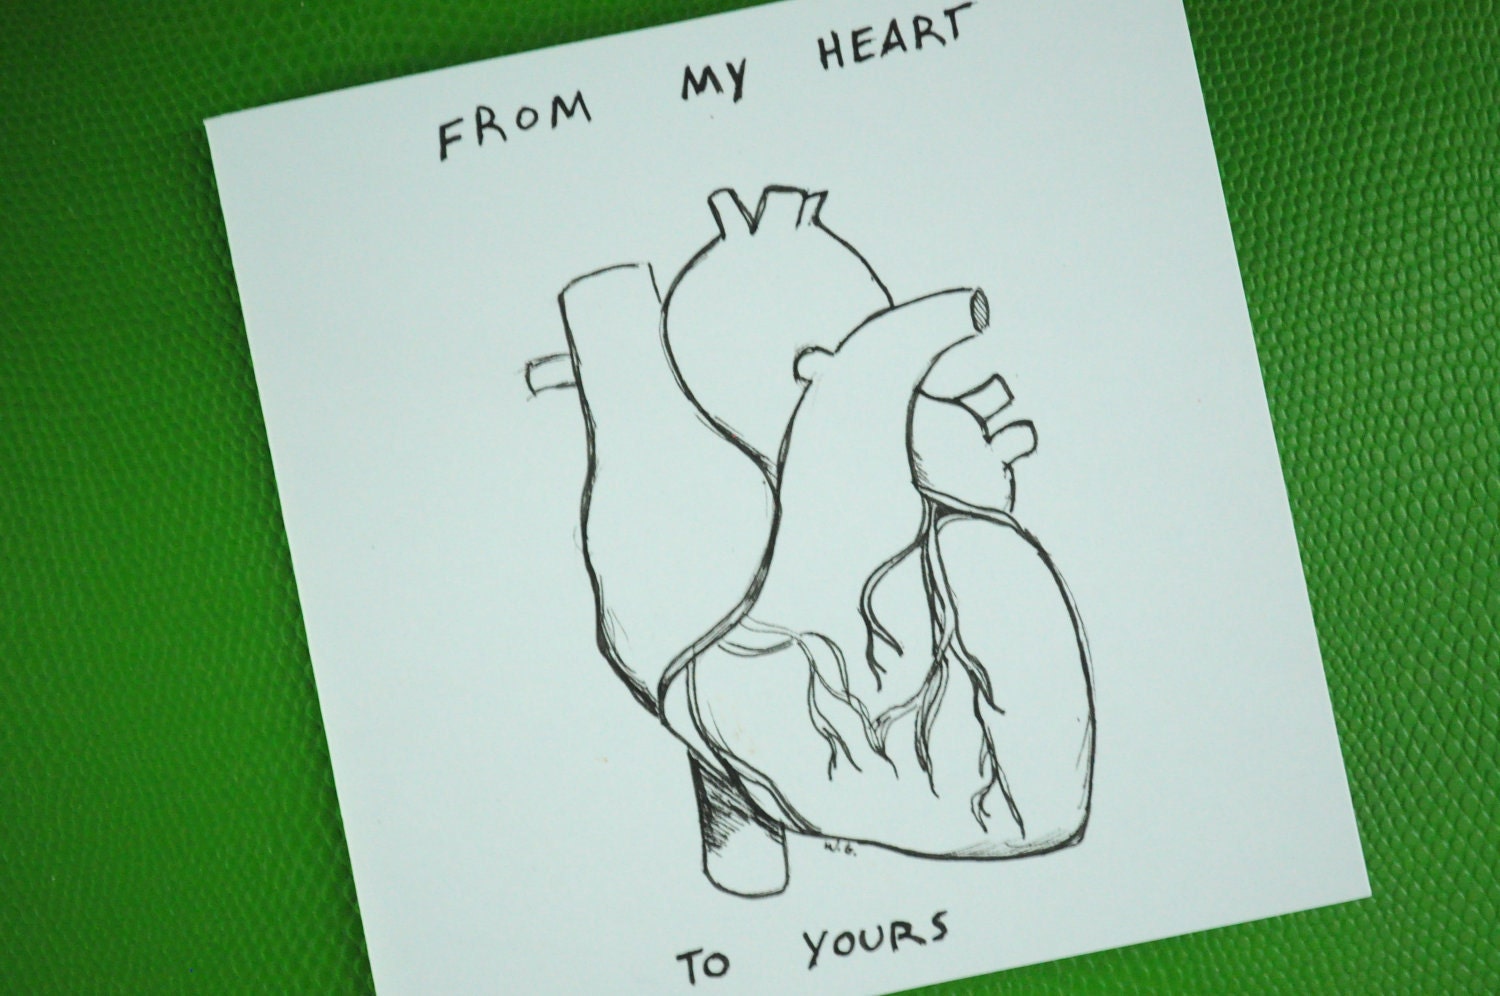 FROM MY HEART
TO YOURS